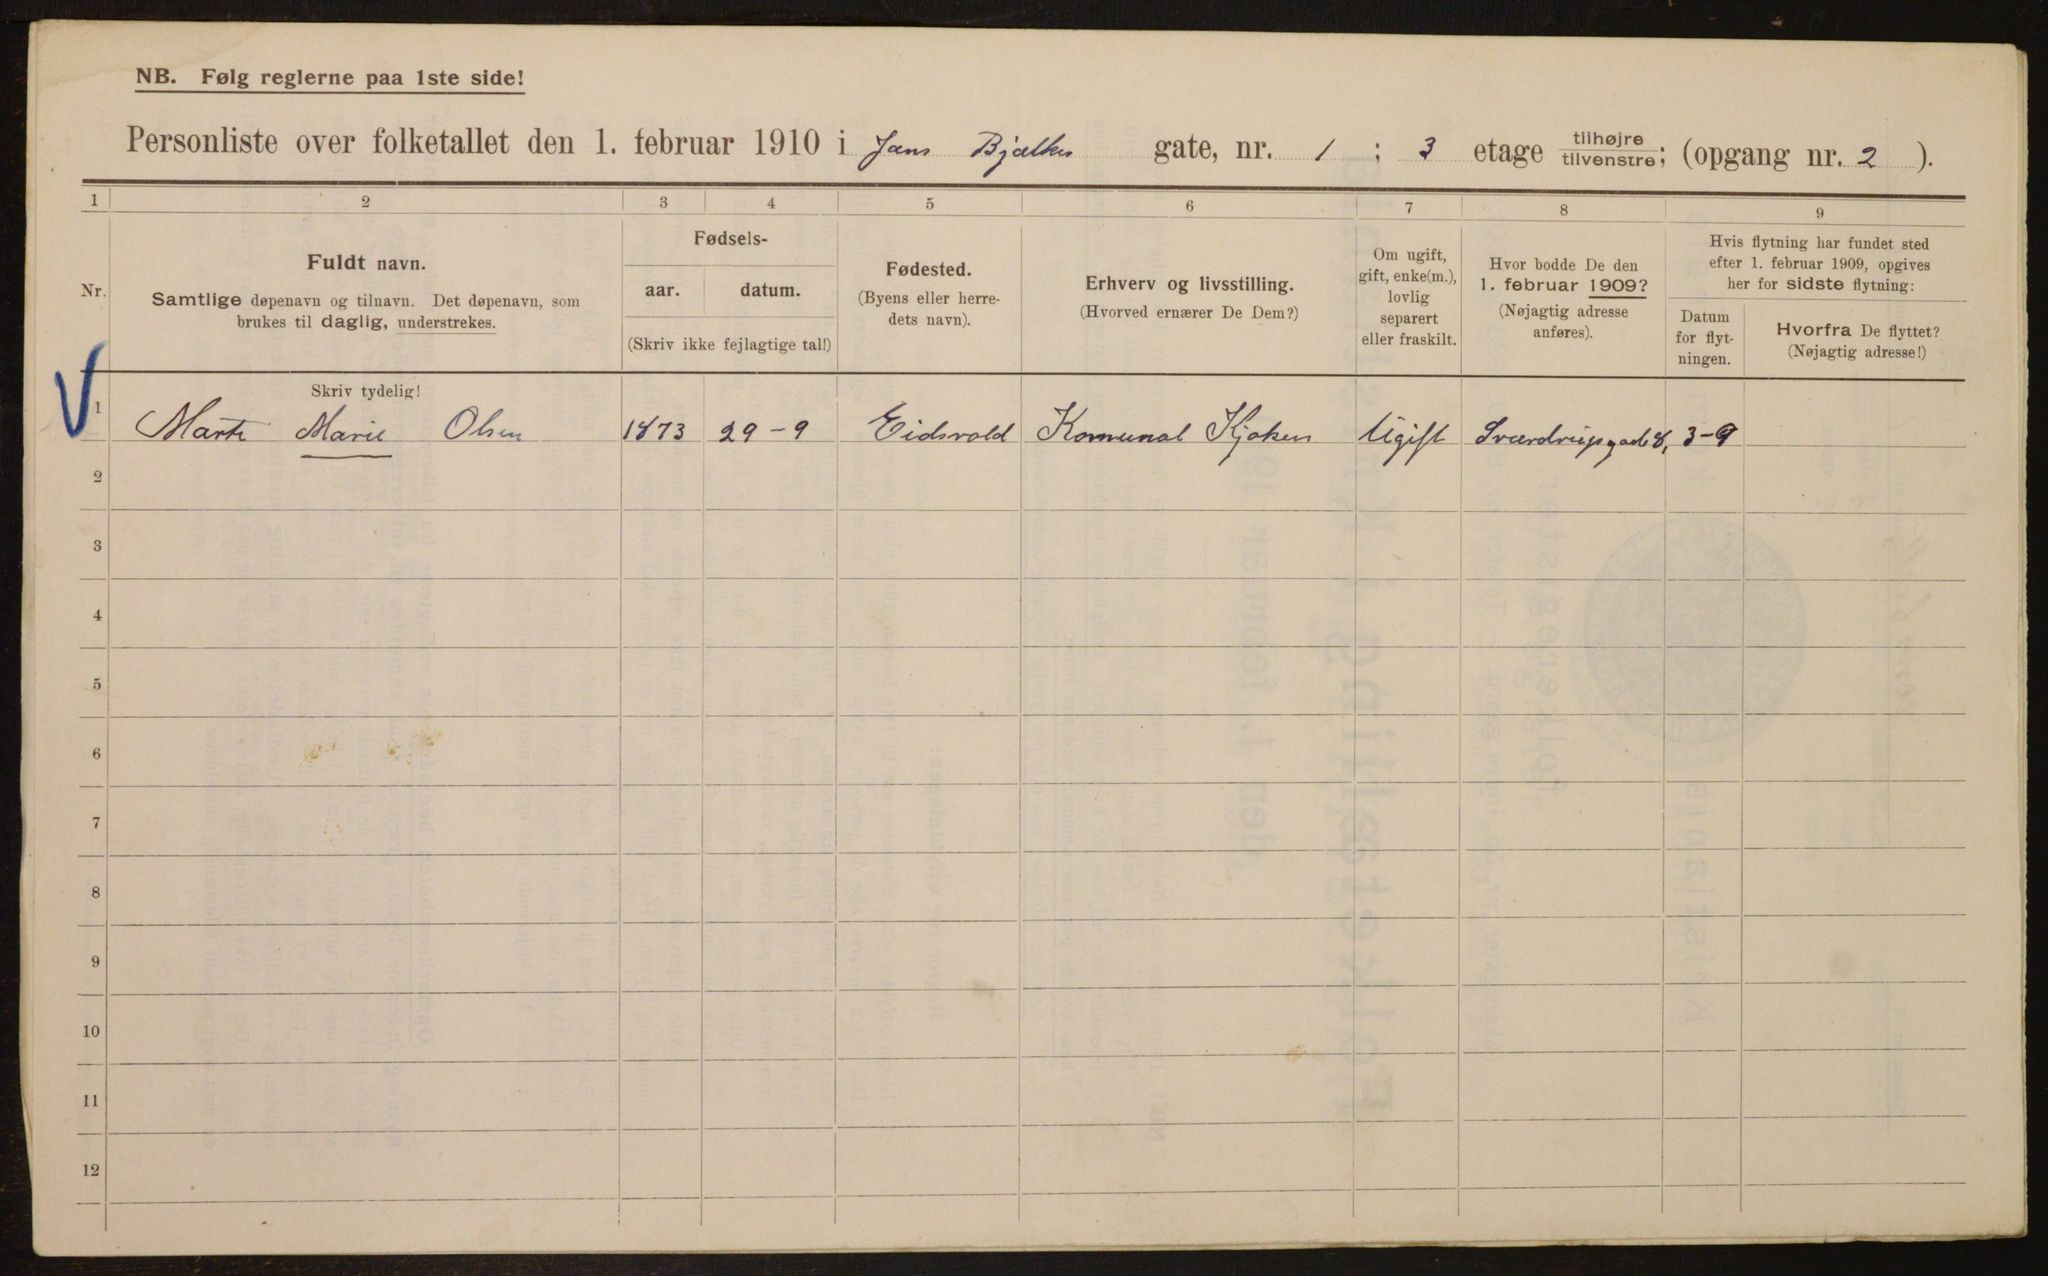 NB. Følg reglerne paa 1ste side!
Personliste over folketallet den 1. februar 1910 i Jens Bjelkes gate, nr. 1 ; 3 etage tilhøjre/tilvenstre; (opgang nr. 2 ).
1 2 3 4 5 6 7 8 9
Nr.
Fuldt navn.
Samtlige døpenavn og tilnavn. Det døpenavn, som
brukes til daglig, understrekes.
Skriv tydelig!
Fødsels-
aar. datum.
(Skriv ikke fejlagtige tal!)
Fødested.
(Byens eller herre-
dets navn).
Erhverv og livsstilling.
(Hvorved ernærer De Dem?)
Om ugift,
gift, enke(m.),
lovlig
separert
eller fraskilt.
Hvor bodde De den
1. februar 1909?
(Nøjagtig adresse
anføres).
Hvis flytning har fundet sted
efter 1. februar 1909, opgives
her for sidste flytning:
Datum
for flyt-
ningen.
Hvorfra De flyttet?
(Nøjagtig adresse!)
1 Marte Marie Olsen 1873 29-9 Eidsvold Komunal Kjøken Ugift Sverdrupsgade 8, 3-9
2
3
4
5
6
7
8
9
10
11
12